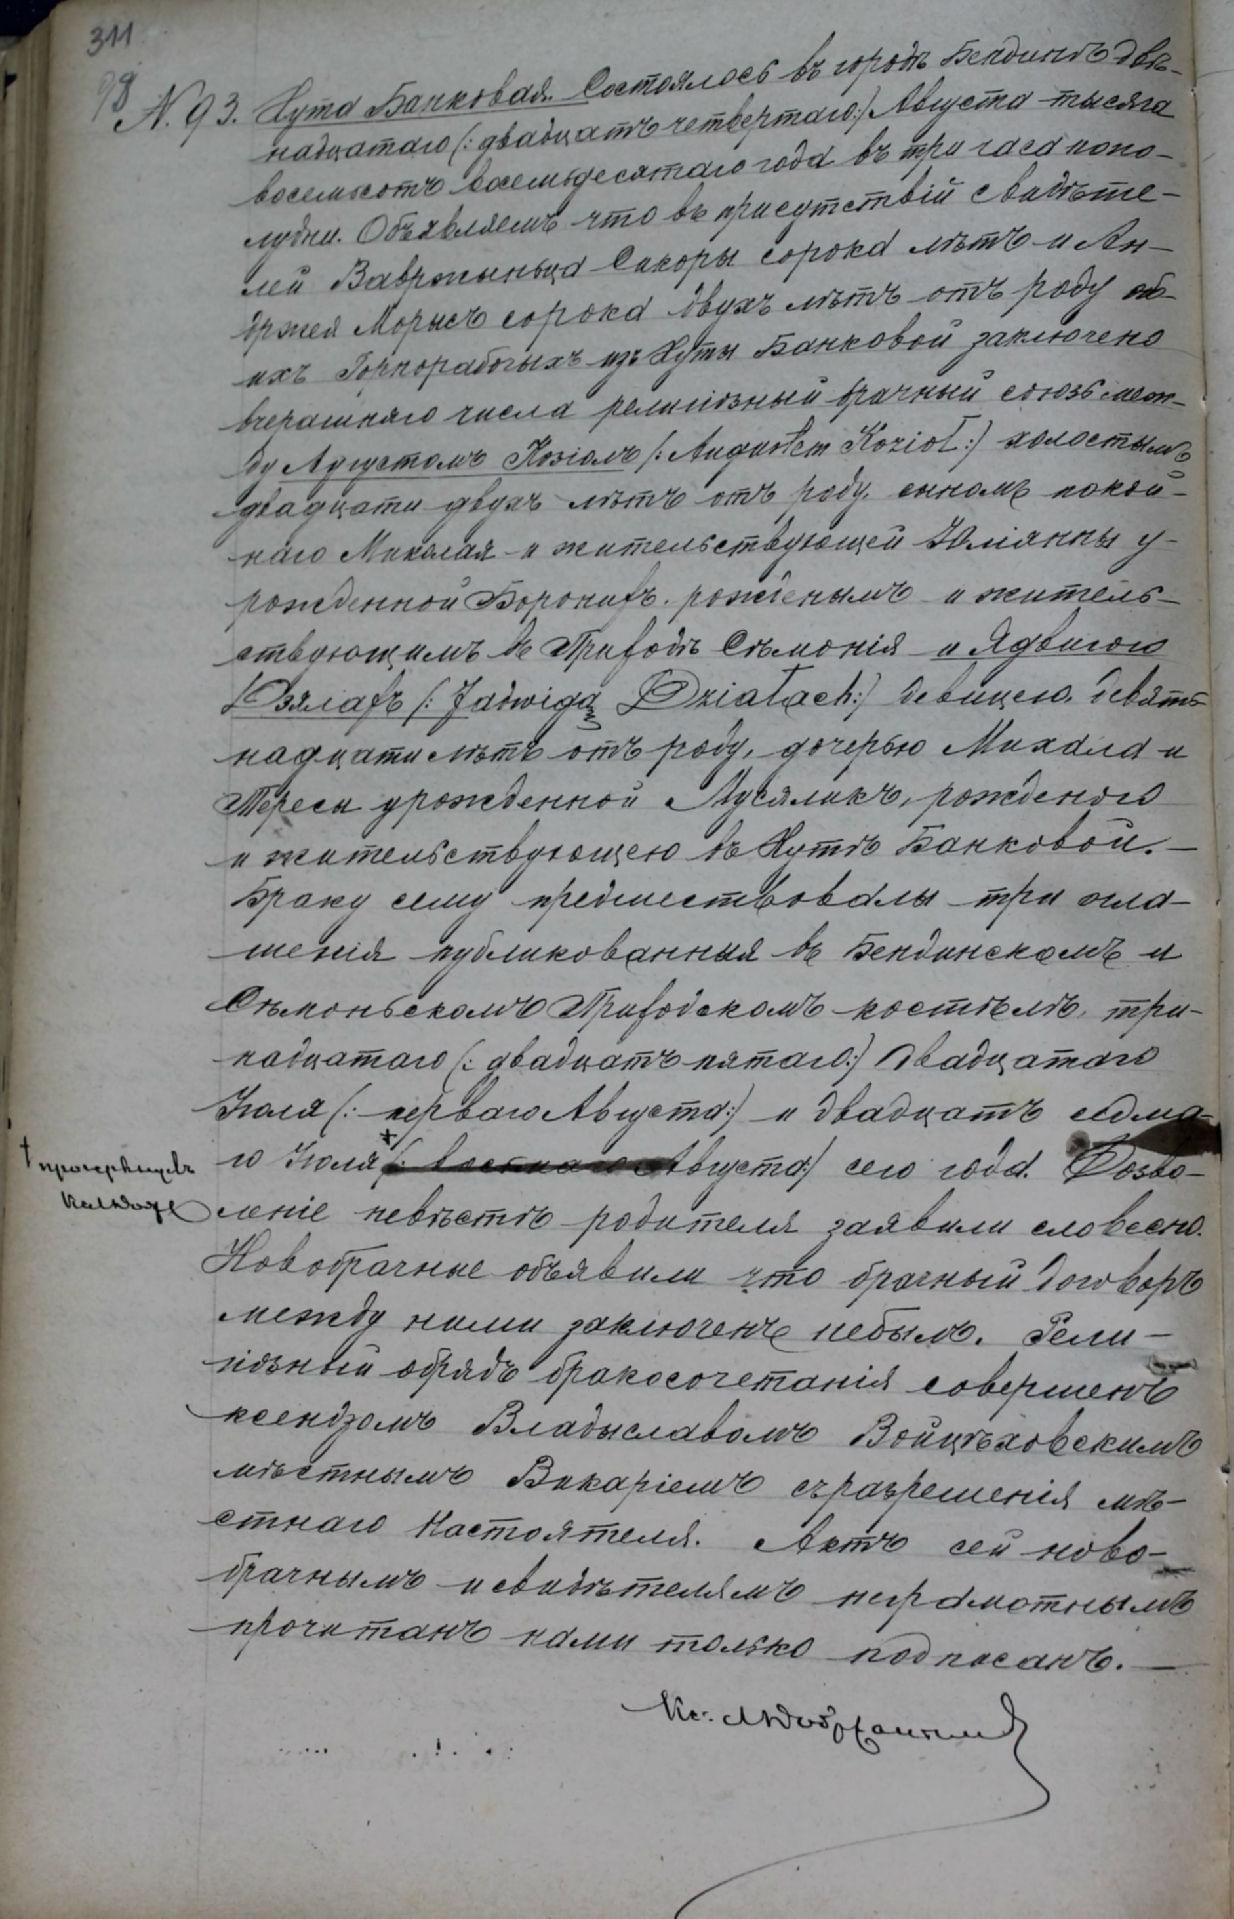 311
98
N. 93. Хута Банковая. Состоялось въ городѣ Бендинѣ двѣ-
надцатаго (: двадцать четвертаго:) Августа тысяча
восемьсотъ восемьдесятаго года въ три часа попо-
лудни. Объявляемъ что въ присутствій свидѣте-
лей Вавржыньца Сикоры сорока лѣтъ и Ан-
држея Морысъ сорока двухъ лѣтъ отъ роду об-
ихъ Горнорабочыхъ изъ Хуты Банковой заключено
вчерашняго числа религіозный брачный союзъ меж-
ду Аугустомъ Козіолъ (: Augustem Kozioł :) холостымъ
двадцати двухъ лѣтъ отъ роду, сыномъ покой-
наго Миколая и жительствующей Юліанны у-
рожденной Боронь, рожденымъ и житель-
ствующимъ въ Приходѣ Сѣмонія и Ядвигою
Дзялахъ (: Jadwigą Działach :) девицею, девят-
надцати лѣтъ отъ роду, дочерью Михала и
Тересы урожденной Мусяликъ, рожденою
и жительствующею въ Хутѣ Банковой. —
Браку сему предшествовалы три огла-
шенія публикованныя въ Бендинскомъ и
Сѣмоньскомъ Приходскомъ костѣлѣ, три-
надцатаго (: двадцать пятаго:) двадцатаго
Іюля (: перваго Августа:) и двадцать седма-
го Іюля + (: восьмаго Августа:) сего года. Дозво-
† прочеркнувъ
леніе невѣстѣ родителя заявили словесно.
Новобрачные объявили что брачный договоръ
между ними заключенъ небылъ. Рели-
гіозный обрядъ бракосочетанія совершенъ
ксендзомъ Владыславомъ Войцѣховскимъ
мѣстнымъ Викаріемъ съ разрешенія мѣ-
стнаго Настоятеля. Актъ сей ново-
брачнымъ и свидѣтелямъ неграмотнымъ
прочитанъ нами только подписанъ. —
Кс.